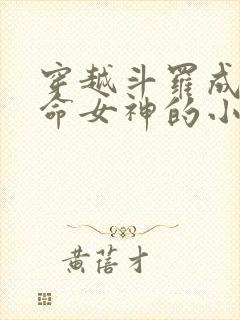 穿越斗罗成
命女神的小
黄蓓才